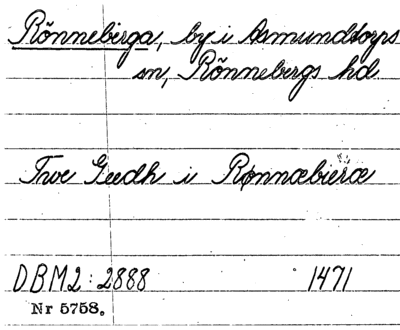 Rönneberga, by i Asmundtorps
sn, Rönnebergs hd.
Twe Geedh i Rønnæbieræ
DBM2: 2888 1471
Nr 5758.